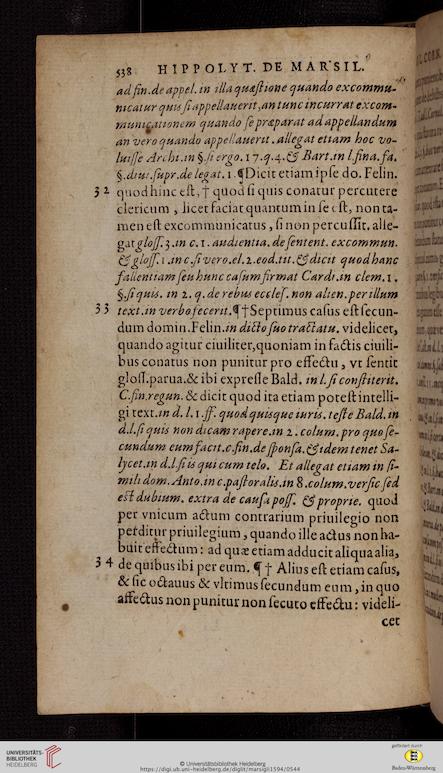 538 HIPPOLYT. DE MARSIL.
ad fin. de appel. in illa quæstione quando excommu-
nicatur quis si appellauerit, an tunc incurrat excom-
municationem quando se præparat ad appellandum
an vero quando appellauerit. allegat etiam hoc vo-
luisse Archi. in §. si ergo. 17. q. 4. & Bart. in l. fina. fa.
§. diui. supr. de legat. 1. ¶ Dicit etiam ipse do. Felin.
32 quod hinc est, † quod si quis conatur percutere
clericum, licet faciat quantum in se est, non ta-
men est excommunicatus, si non percussit. alle-
gat gloss. 3. in c. 1. audientia. de sentent. excommun.
& gloss. 1. in c. si vero. el. 2. eod. tit. & dicit quod hanc
fallentiam seu hunc casum firmat Cardi. in clem. 1.
§. si quis. in 2. q. de rebus eccles. non alien. per illum
33 text. in verbo fecerit. ¶ † Septimus casus est secun-
dum domin. Felin. in dicto suo tractatu. videlicet,
quando agitur ciuiliter, quoniam in factis ciuili-
bus conatus non punitur pro effectu, vt sentit
gloss. parua. & ibi expresse Bald. in l. si constiterit.
C. fin. regun. & dicit quod ita etiam potest intelli-
gi text. in d. l. 1. ff. quod quisque iuris. teste Bald. in
d. l. si quis non dicam rapere. in 2. colum. pro quo se-
cundum eum facit. c. fin. de sponsa. & idem tenet Sa-
lycet. in d. l. si is qui cum telo. Et allegat etiam in si-
mili dom. Anto. in c. pastoralis. in 8. colum. versic. sed
est dubium. extra de causa poss. & proprie. quod
per vnicum actum contrarium priuilegio non
perditur priuilegium, quando ille actus non ha-
buit effectum: ad quæ etiam adducit aliqua alia,
34 de quibus ibi per eum. ¶ † Alius est etiam casus,
& sic octauus & vltimus secundum eum, in quo
affectus non punitur non secuto effectu: videli-
cet
UNIVERSITÄTS-
BIBLIOTHEK
HEIDELBERG
© Universitätsbibliothek Heidelberg
https://digi.ub.uni-heidelberg.de/diglit/marsigli1594/0544
gefördert durch
Baden-Württemberg